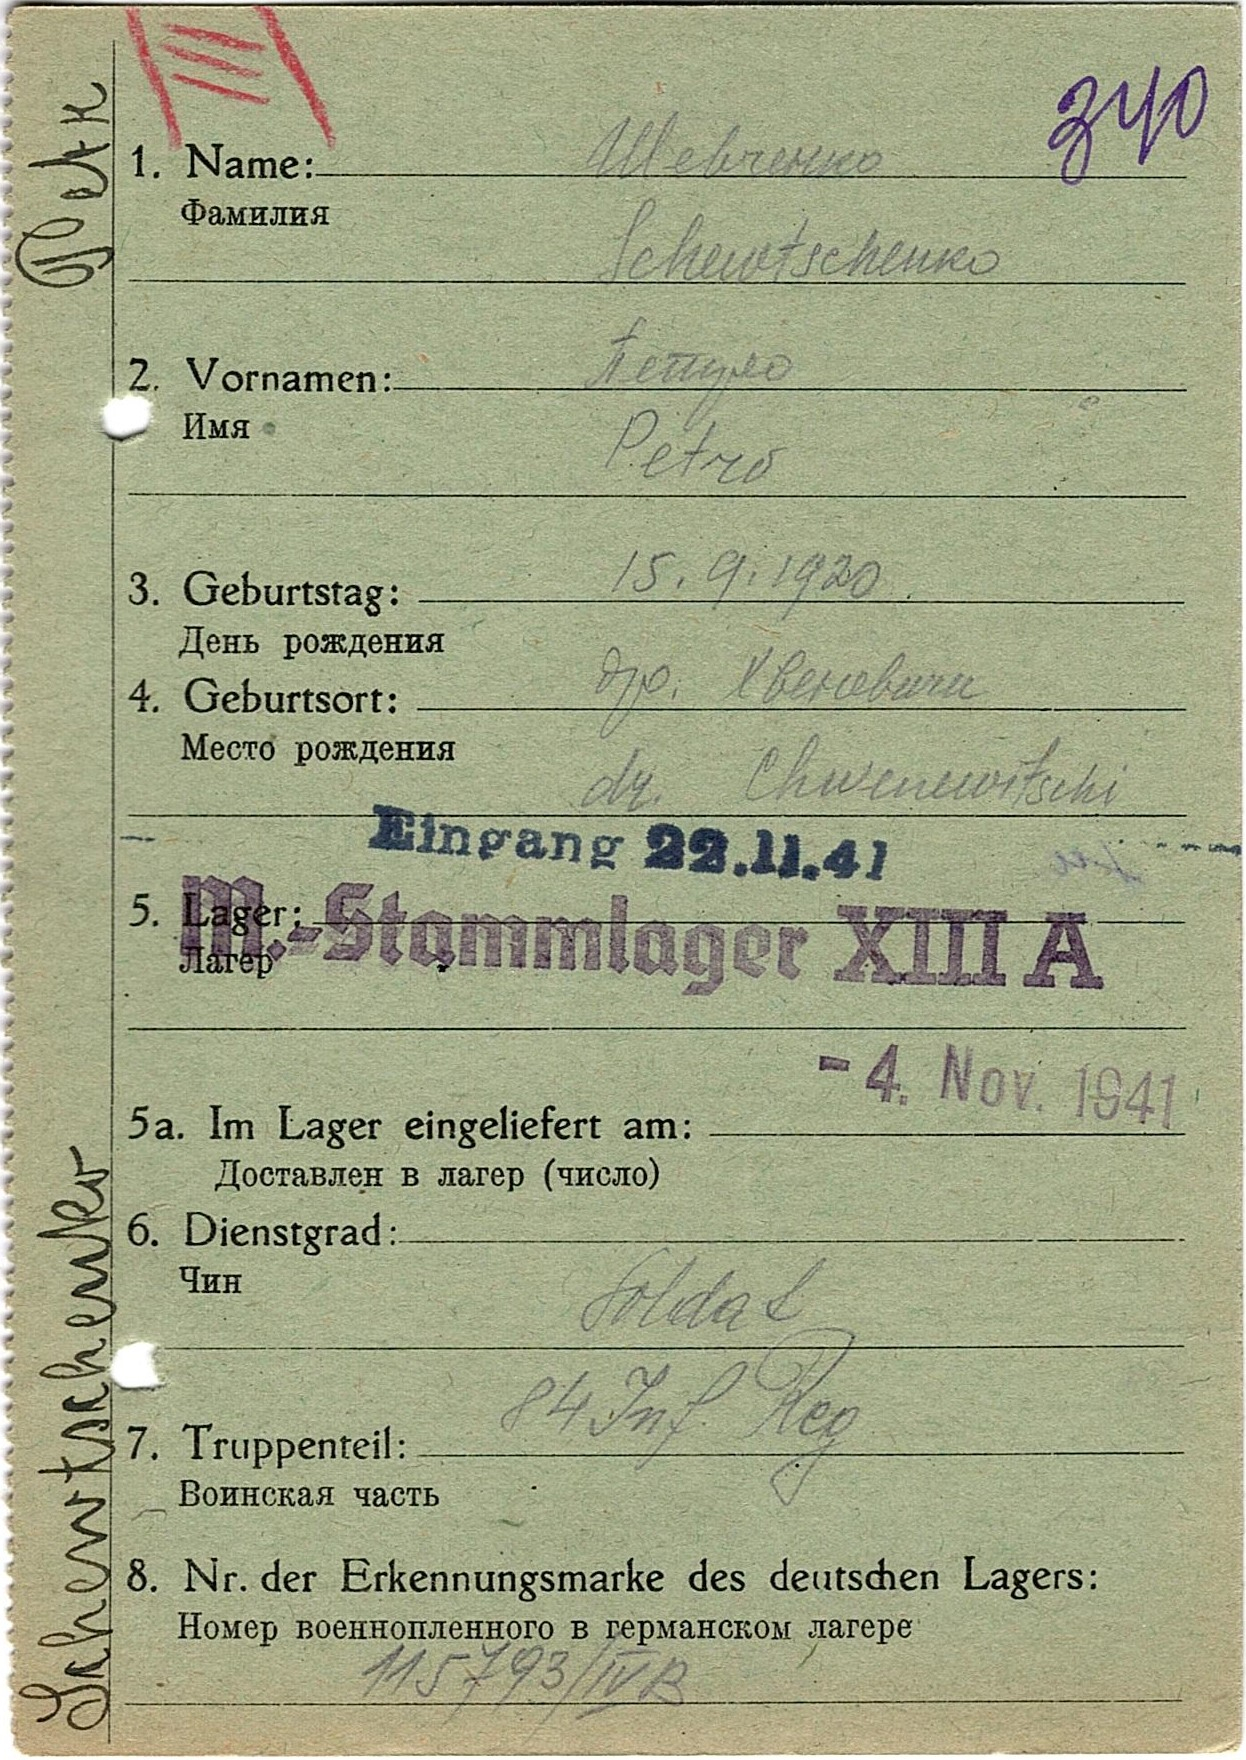 340
1. Name: Шевченко
Фамилия
Schewtschenko
2. Vornamen: Петро
Имя
Petro
3. Geburtstag: 15.9.1920
День рождения
4. Geburtsort: др.
Место рождения
dr. Chwenewitschi
Eingang 22.11.41
5. Lager: M.-Stammlager XIII A
Лагер
- 4. Nov. 1941
5a. Im Lager eingeliefert am:
Доставлен в лагер (число)
6. Dienstgrad:
Чин
Soldat
84 Inf. Reg
7. Truppenteil:
Воинская часть
8. Nr. der Erkennungsmarke des deutschen Lagers:
Номер военнопленного в германском лагере
115793/IV B
Schewtschenko